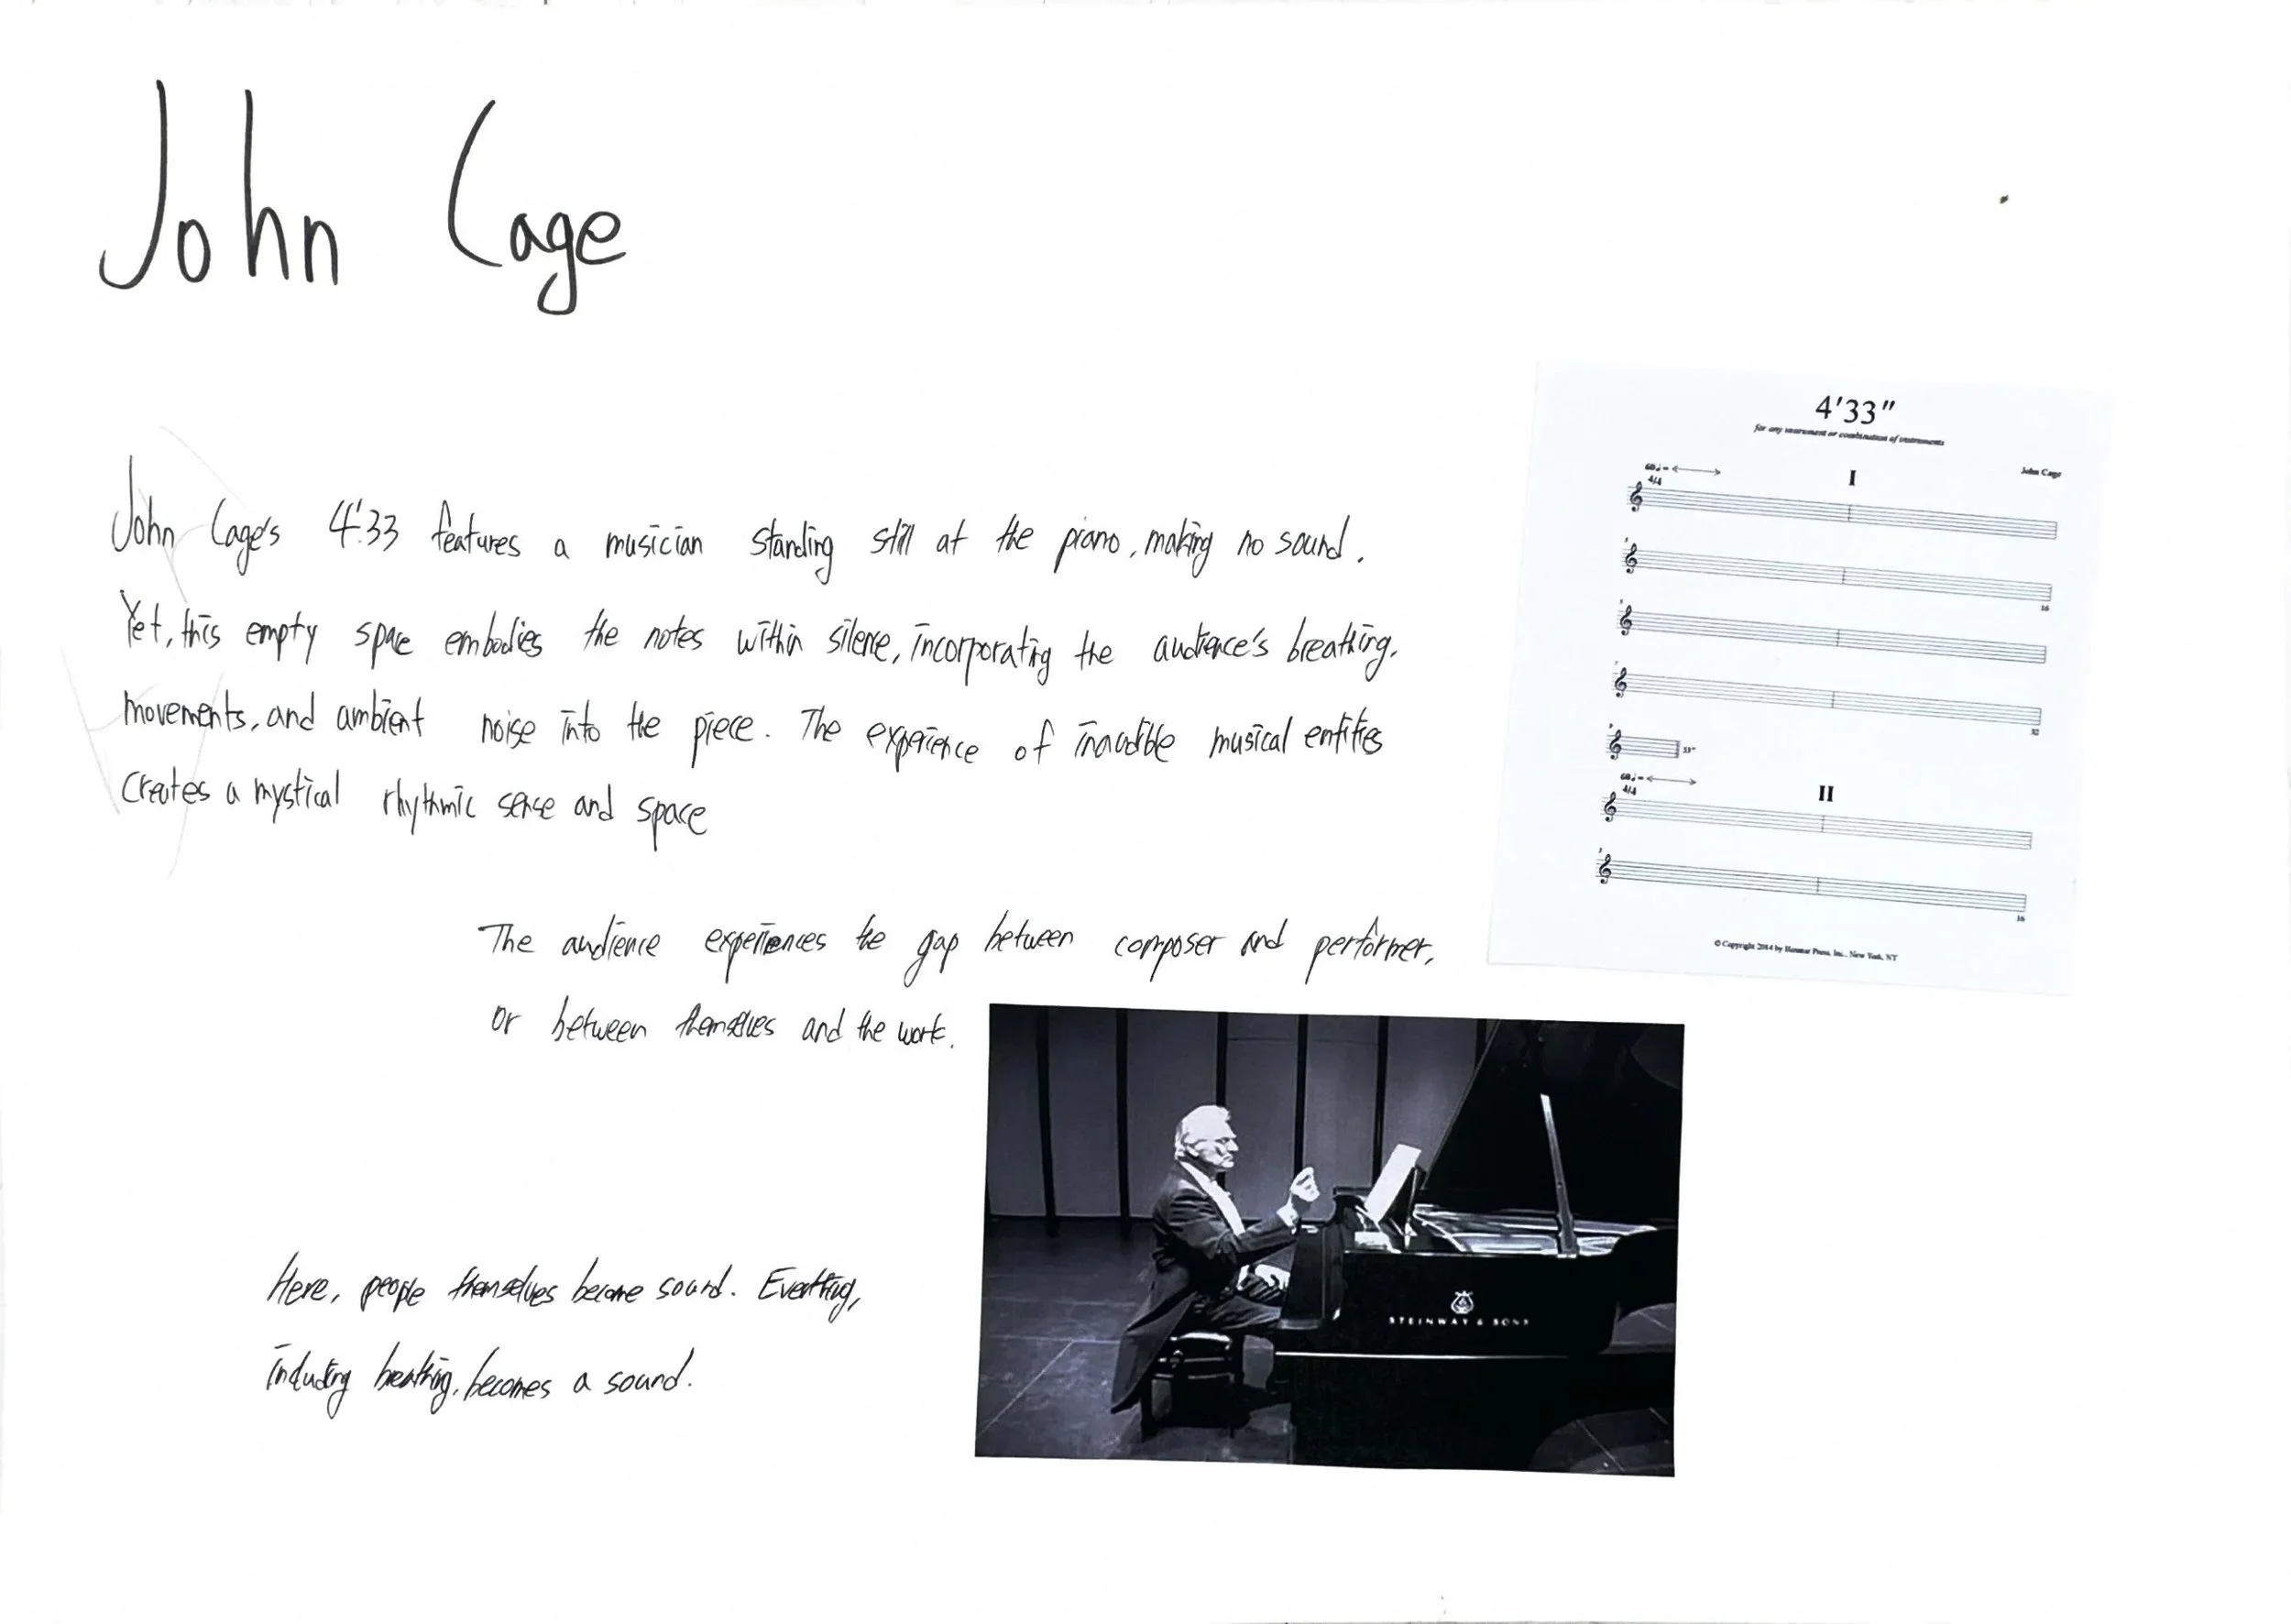 John Cage
John Cage's 4'33 features a musician standing still at the piano, making no sound.
Yet, this empty space embodies the notes within silence, incorporating the audience's breathing,
movements, and ambient noise into the piece. The experience of inaudible musical entities
creates a mystical rhythmic sense and space
The audience experiences the gap between composer and performer,
or between themselves and the work.
Here, people themselves become sound. Everthing,
including breathing, becomes a sound.
4'33"
for any instrument or combination of instruments
John Cage
60
4/4
I
16
32
33"
60
4/4
II
16
© Copyright 2014 by Henmar Press, Inc., New York, NY
STEINWAY & SONS